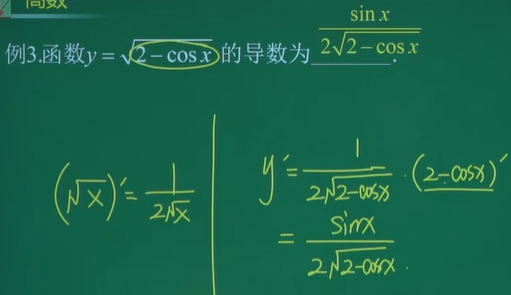 高数
例3.函数y = √(2 − cos x) 的导数为 sin x / (2√(2 − cos x)) .
(√x)′ = 1 / (2√x)
y′ = 1 / (2√(2-cosx)) · (2-cosx)′
= sinx / (2√(2-cosx)) .